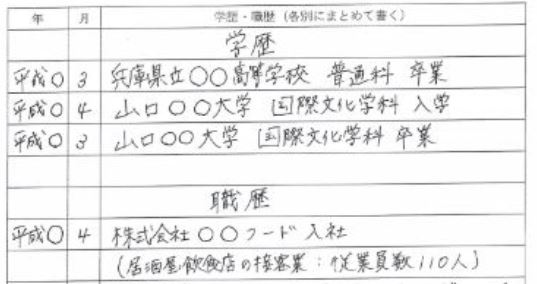 年 月 学歴・職歴（各別にまとめて書く）
学歴
平成〇 3 兵庫県立〇〇高等学校 普通科 卒業
平成〇 4 山口〇〇大学 国際文化学科 入学
平成〇 3 山口〇〇大学 国際文化学科 卒業
職歴
平成〇 4 株式会社〇〇フード入社
（居酒屋飲食店の接客業：従業員数110人）